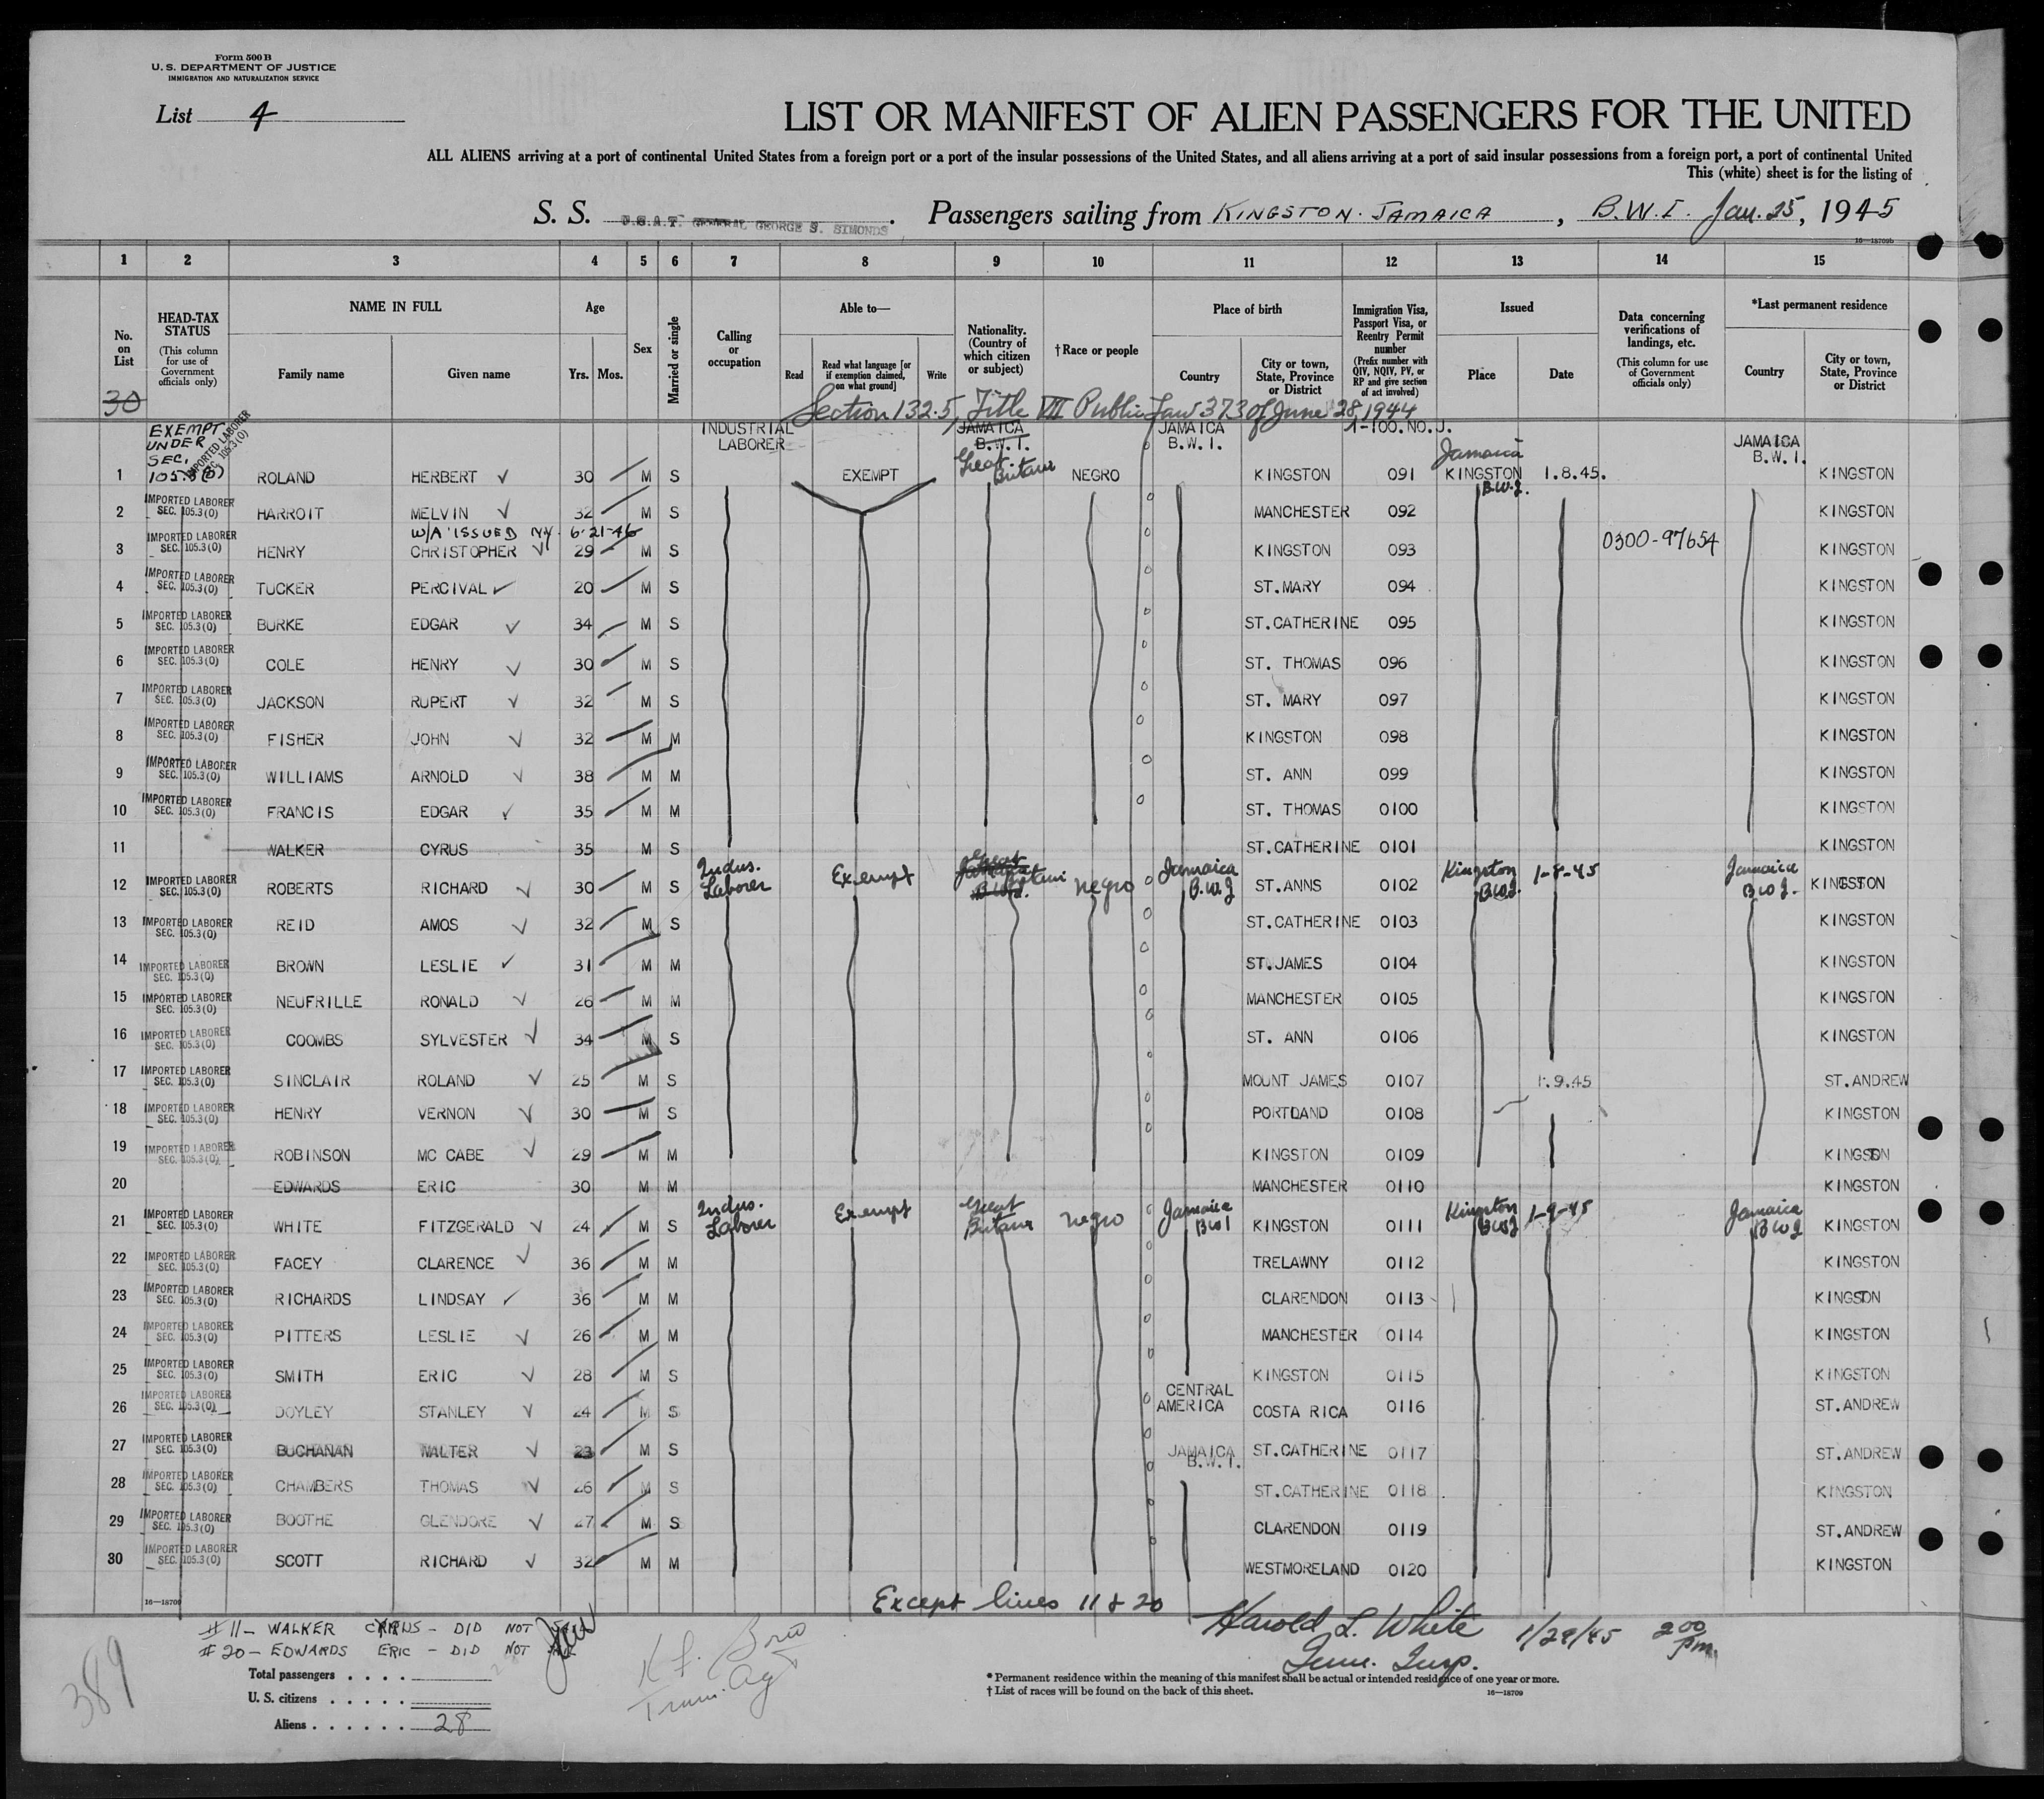 Form 500 B
U. S. DEPARTMENT OF JUSTICE
IMMIGRATION AND NATURALIZATION SERVICE
List 4
LIST OR MANIFEST OF ALIEN PASSENGERS FOR THE UNITED
ALL ALIENS arriving at a port of continental United States from a foreign port or a port of the insular possessions of the United States, and all aliens arriving at a port of said insular possessions from a foreign port, a port of continental United
This (white) sheet is for the listing of
S. S. U.S.A.T. GENERAL GEORGE S. SIMONDS . Passengers sailing from KINGSTON. JAMAICA , B.W.I. Jan. 25, 1945
16—18709b
1 2 3 4 5 6 7 8 9 10 11 12 13 14 15
No. on List
HEAD-TAX STATUS (This column for use of Government officials only)
NAME IN FULL Family name Given name
Age Yrs. Mos.
Sex
Married or single
Calling or occupation
Able to— Read Read what language [or if exemption claimed, on what ground] Write
Nationality. (Country of which citizen or subject)
†Race or people
Place of birth Country City or town, State, Province or District
Immigration Visa, Passport Visa, or Reentry Permit number (Prefix number with QIV, NQIV, PV, or RP and give section of act involved)
Issued Place Date
Data concerning verifications of landings, etc. (This column for use of Government officials only)
*Last permanent residence Country City or town, State, Province or District
30
Section 132.5, Title VII Public Law 373 of June 28, 1944
EXEMPT UNDER SEC. 105.3(B) IMPORTED LABORER SEC. 105.3(O)
INDUSTRIAL LABORER JAMAICA B.W.I. JAMAICA B.W.I. 1-100. NO. J. JAMAICA B.W.I.
1 ROLAND HERBERT √ 30 M S EXEMPT Great Britain NEGRO KINGSTON 091 Jamaica KINGSTON B.W.I. 1.8.45. KINGSTON
2 IMPORTED LABORER SEC. 105.3(O) HARROIT MELVIN √ 32 M S MANCHESTER 092 KINGSTON
W/A ISSUED NY. 6-21-46
3 IMPORTED LABORER SEC. 105.3(O) HENRY CHRISTOPHER √ 29 M S KINGSTON 093 0300-97654 KINGSTON
4 IMPORTED LABORER SEC. 105.3(O) TUCKER PERCIVAL √ 20 M S ST.MARY 094 KINGSTON
5 IMPORTED LABORER SEC. 105.3(O) BURKE EDGAR √ 34 M S ST.CATHERINE 095 KINGSTON
6 IMPORTED LABORER SEC. 105.3(O) COLE HENRY √ 30 M S ST. THOMAS 096 KINGSTON
7 IMPORTED LABORER SEC. 105.3(O) JACKSON RUPERT √ 32 M S ST. MARY 097 KINGSTON
8 IMPORTED LABORER SEC. 105.3(O) FISHER JOHN √ 32 M M KINGSTON 098 KINGSTON
9 IMPORTED LABORER SEC. 105.3(O) WILLIAMS ARNOLD √ 38 M M ST. ANN 099 KINGSTON
10 IMPORTED LABORER SEC. 105.3(O) FRANCIS EDGAR √ 35 M M ST. THOMAS 0100 KINGSTON
11 WALKER CYRUS 35 M S ST.CATHERINE 0101 KINGSTON
12 IMPORTED LABORER SEC. 105.3(O) ROBERTS RICHARD √ 30 M S Indus. Laborer Exempt Great Britain negro Jamaica B.W.I ST.ANNS 0102 Kingston BWI 1-8-45 Jamaica BWI. KINGSTON
13 IMPORTED LABORER SEC. 105.3(O) REID AMOS √ 32 M S ST.CATHERINE 0103 KINGSTON
14 IMPORTED LABORER SEC. 105.3(O) BROWN LESLIE √ 31 M M ST.JAMES 0104 KINGSTON
15 IMPORTED LABORER SEC. 105.3(O) NEUFRILLE RONALD √ 26 M M MANCHESTER 0105 KINGSTON
16 IMPORTED LABORER SEC. 105.3(O) COOMBS SYLVESTER √ 34 M S ST. ANN 0106 KINGSTON
17 IMPORTED LABORER SEC. 105.3(O) SINCLAIR ROLAND √ 25 M S MOUNT JAMES 0107 1.9.45 ST.ANDREW
18 IMPORTED LABORER SEC. 105.3(O) HENRY VERNON √ 30 M S PORTLAND 0108 KINGSTON
19 IMPORTED LABORER SEC. 105.3(O) ROBINSON MC CABE √ 29 M M KINGSTON 0109 KINGSTON
20 EDWARDS ERIC 30 M M MANCHESTER 0110 KINGSTON
21 IMPORTED LABORER SEC. 105.3(O) WHITE FITZGERALD √ 24 M S Indus. Laborer Exempt Great Britain negro Jamaica BWI KINGSTON 0111 Kingston BWI 1-9-45 Jamaica BWI KINGSTON
22 IMPORTED LABORER SEC. 105.3(O) FACEY CLARENCE √ 36 M M TRELAWNY 0112 KINGSTON
23 IMPORTED LABORER SEC. 105.3(O) RICHARDS LINDSAY √ 36 M M CLARENDON 0113 KINGSTON
24 IMPORTED LABORER SEC. 105.3(O) PITTERS LESLIE √ 26 M M MANCHESTER 0114 KINGSTON
25 IMPORTED LABORER SEC. 105.3(O) SMITH ERIC √ 28 M S KINGSTON 0115 KINGSTON
26 IMPORTED LABORER SEC. 105.3(O) DOYLEY STANLEY √ 24 M S CENTRAL AMERICA COSTA RICA 0116 ST.ANDREW
27 IMPORTED LABORER SEC. 105.3(O) BUCHANAN WALTER √ 23 M S JAMAICA B.W.I. ST.CATHERINE 0117 ST.ANDREW
28 IMPORTED LABORER SEC. 105.3(O) CHAMBERS THOMAS √ 26 M S ST.CATHERINE 0118 KINGSTON
29 IMPORTED LABORER SEC. 105.3(O) BOOTHE GLENDORE √ 27 M S CLARENDON 0119 ST.ANDREW
30 IMPORTED LABORER SEC. 105.3(O) SCOTT RICHARD √ 32 M M WESTMORELAND 0120 KINGSTON
16—18709
Except lines 11 & 20
#11— WALKER CYRUS — DID NOT
#20— EDWARDS ERIC — DID NOT
Harold L. White 1/29/45 2 00 pm
Imm. Insp.
389
Total passengers . . . .
U. S. citizens . . . . .
Aliens . . . . . . 28
* Permanent residence within the meaning of this manifest shall be actual or intended residence of one year or more.
† List of races will be found on the back of this sheet.
16—18709